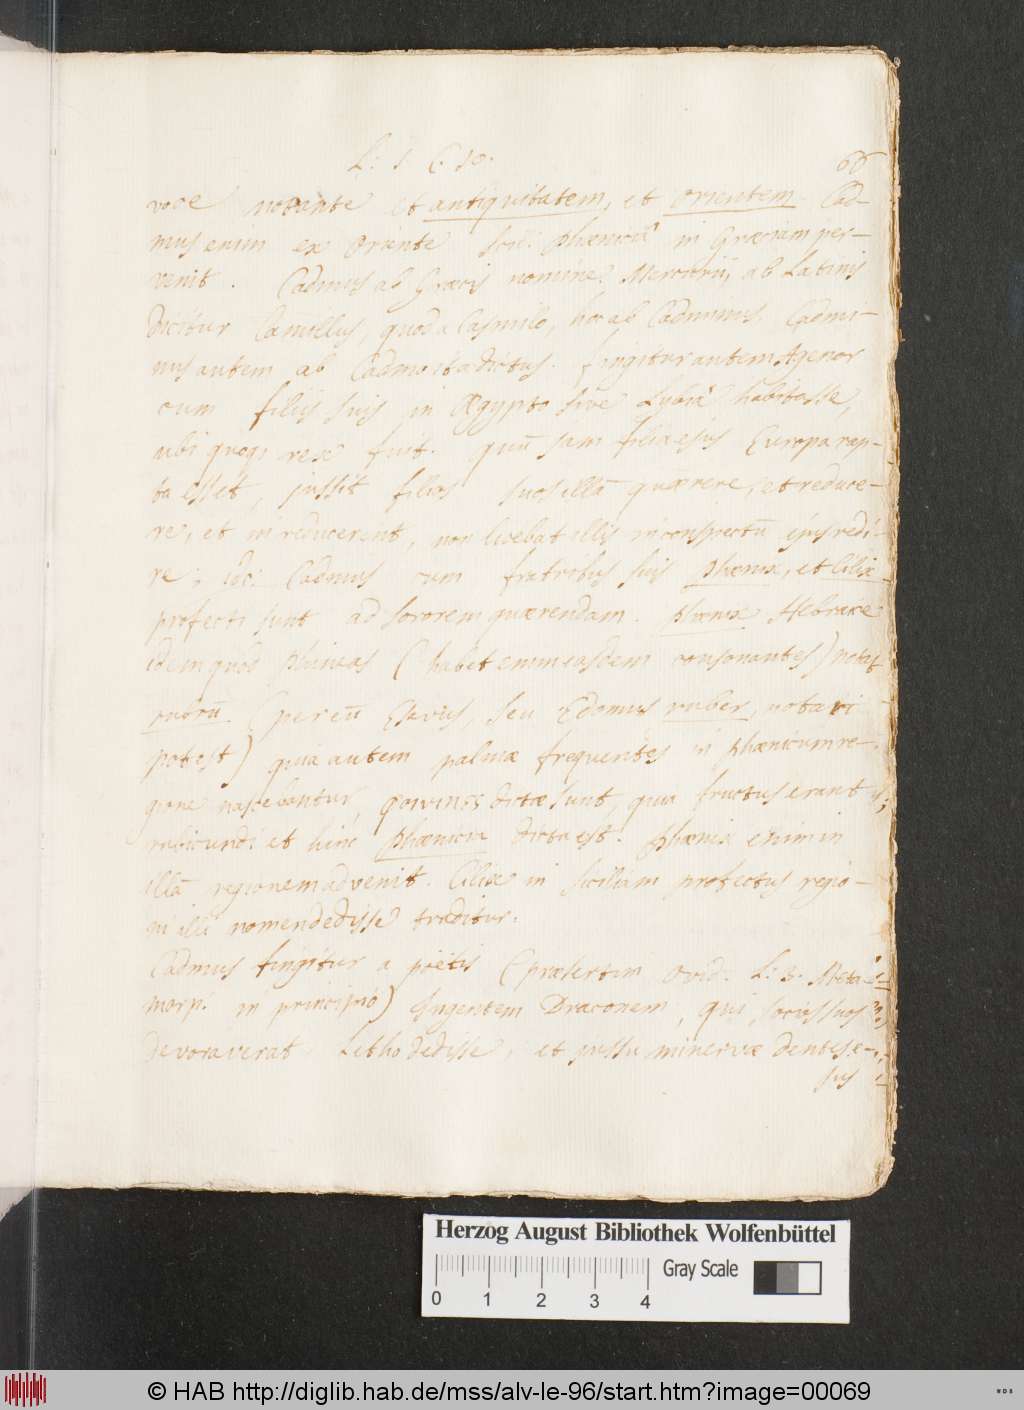 L: 1 C. 10.
66
voce notante et antiquitatem, et orientem. Cad-
mus enim ex Oriente scil: Phœniciâ in Græciam per-
venit. Cadmus ab Græcis nomine Mercurii, ab Latinis
dicitur Camillus, quod a Casmilo, hoc ab Cadminus. Cadmi-
nus autem ab Cadmo ita dictus. fingitur autem Agenor
cum filiis suis in Ægypto sive Lybiâ habitasse,
ubi quoq; rex fuit. quū jam filia ejus Europa rap-
ta esset, jussit filios suos illā quærere, et reduce-
re, et ni reducerent, non licebat illis in conspectū ejus redi-
re, Cadmus cum fratribus suis Phœnix, et Cilix
profecti sunt ad sororem quærendam. Phœnix Hebraice
idem quod Phineas (habet enim easdem consonantes) notat
rubrū (per eū Esavus, seu Edomus ruber, notari
potest) quia autem palmæ frequentes in Phœnicum re-
gione nascebantur, φοίνικες dictæ sunt, quia fructus erant
rubicundi et hinc Phœnicia dicta est. Phœnix enim in
illā regionem advenit. Cilix in Siciliam profectus regio-
ni illi nomen dedisse traditur.
Cadmus fingitur a poëtis (præsertim Ovid. L: 3. Meta-
morp: in principio) Ingentem Draconem, qui socios suos
devoraverat Letho dedisse, et jussu Minervæ dentes e-
jus
Herzog August Bibliothek Wolfenbüttel
Gray Scale
0 1 2 3 4
© HAB http://diglib.hab.de/mss/alv-le-96/start.htm?image=00069